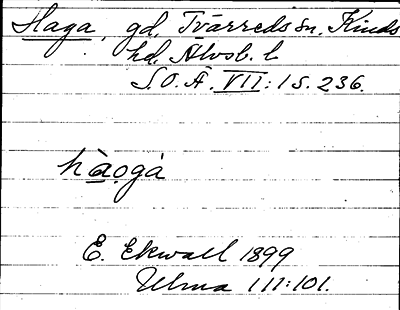 Haga, gd, Tvärreds sn. Kinds
hd. Älvsb. l.
S.O.Ä. VII:1 s. 236.
hào̤gȧ
E. Ekwall 1899
Ulma 111:101.